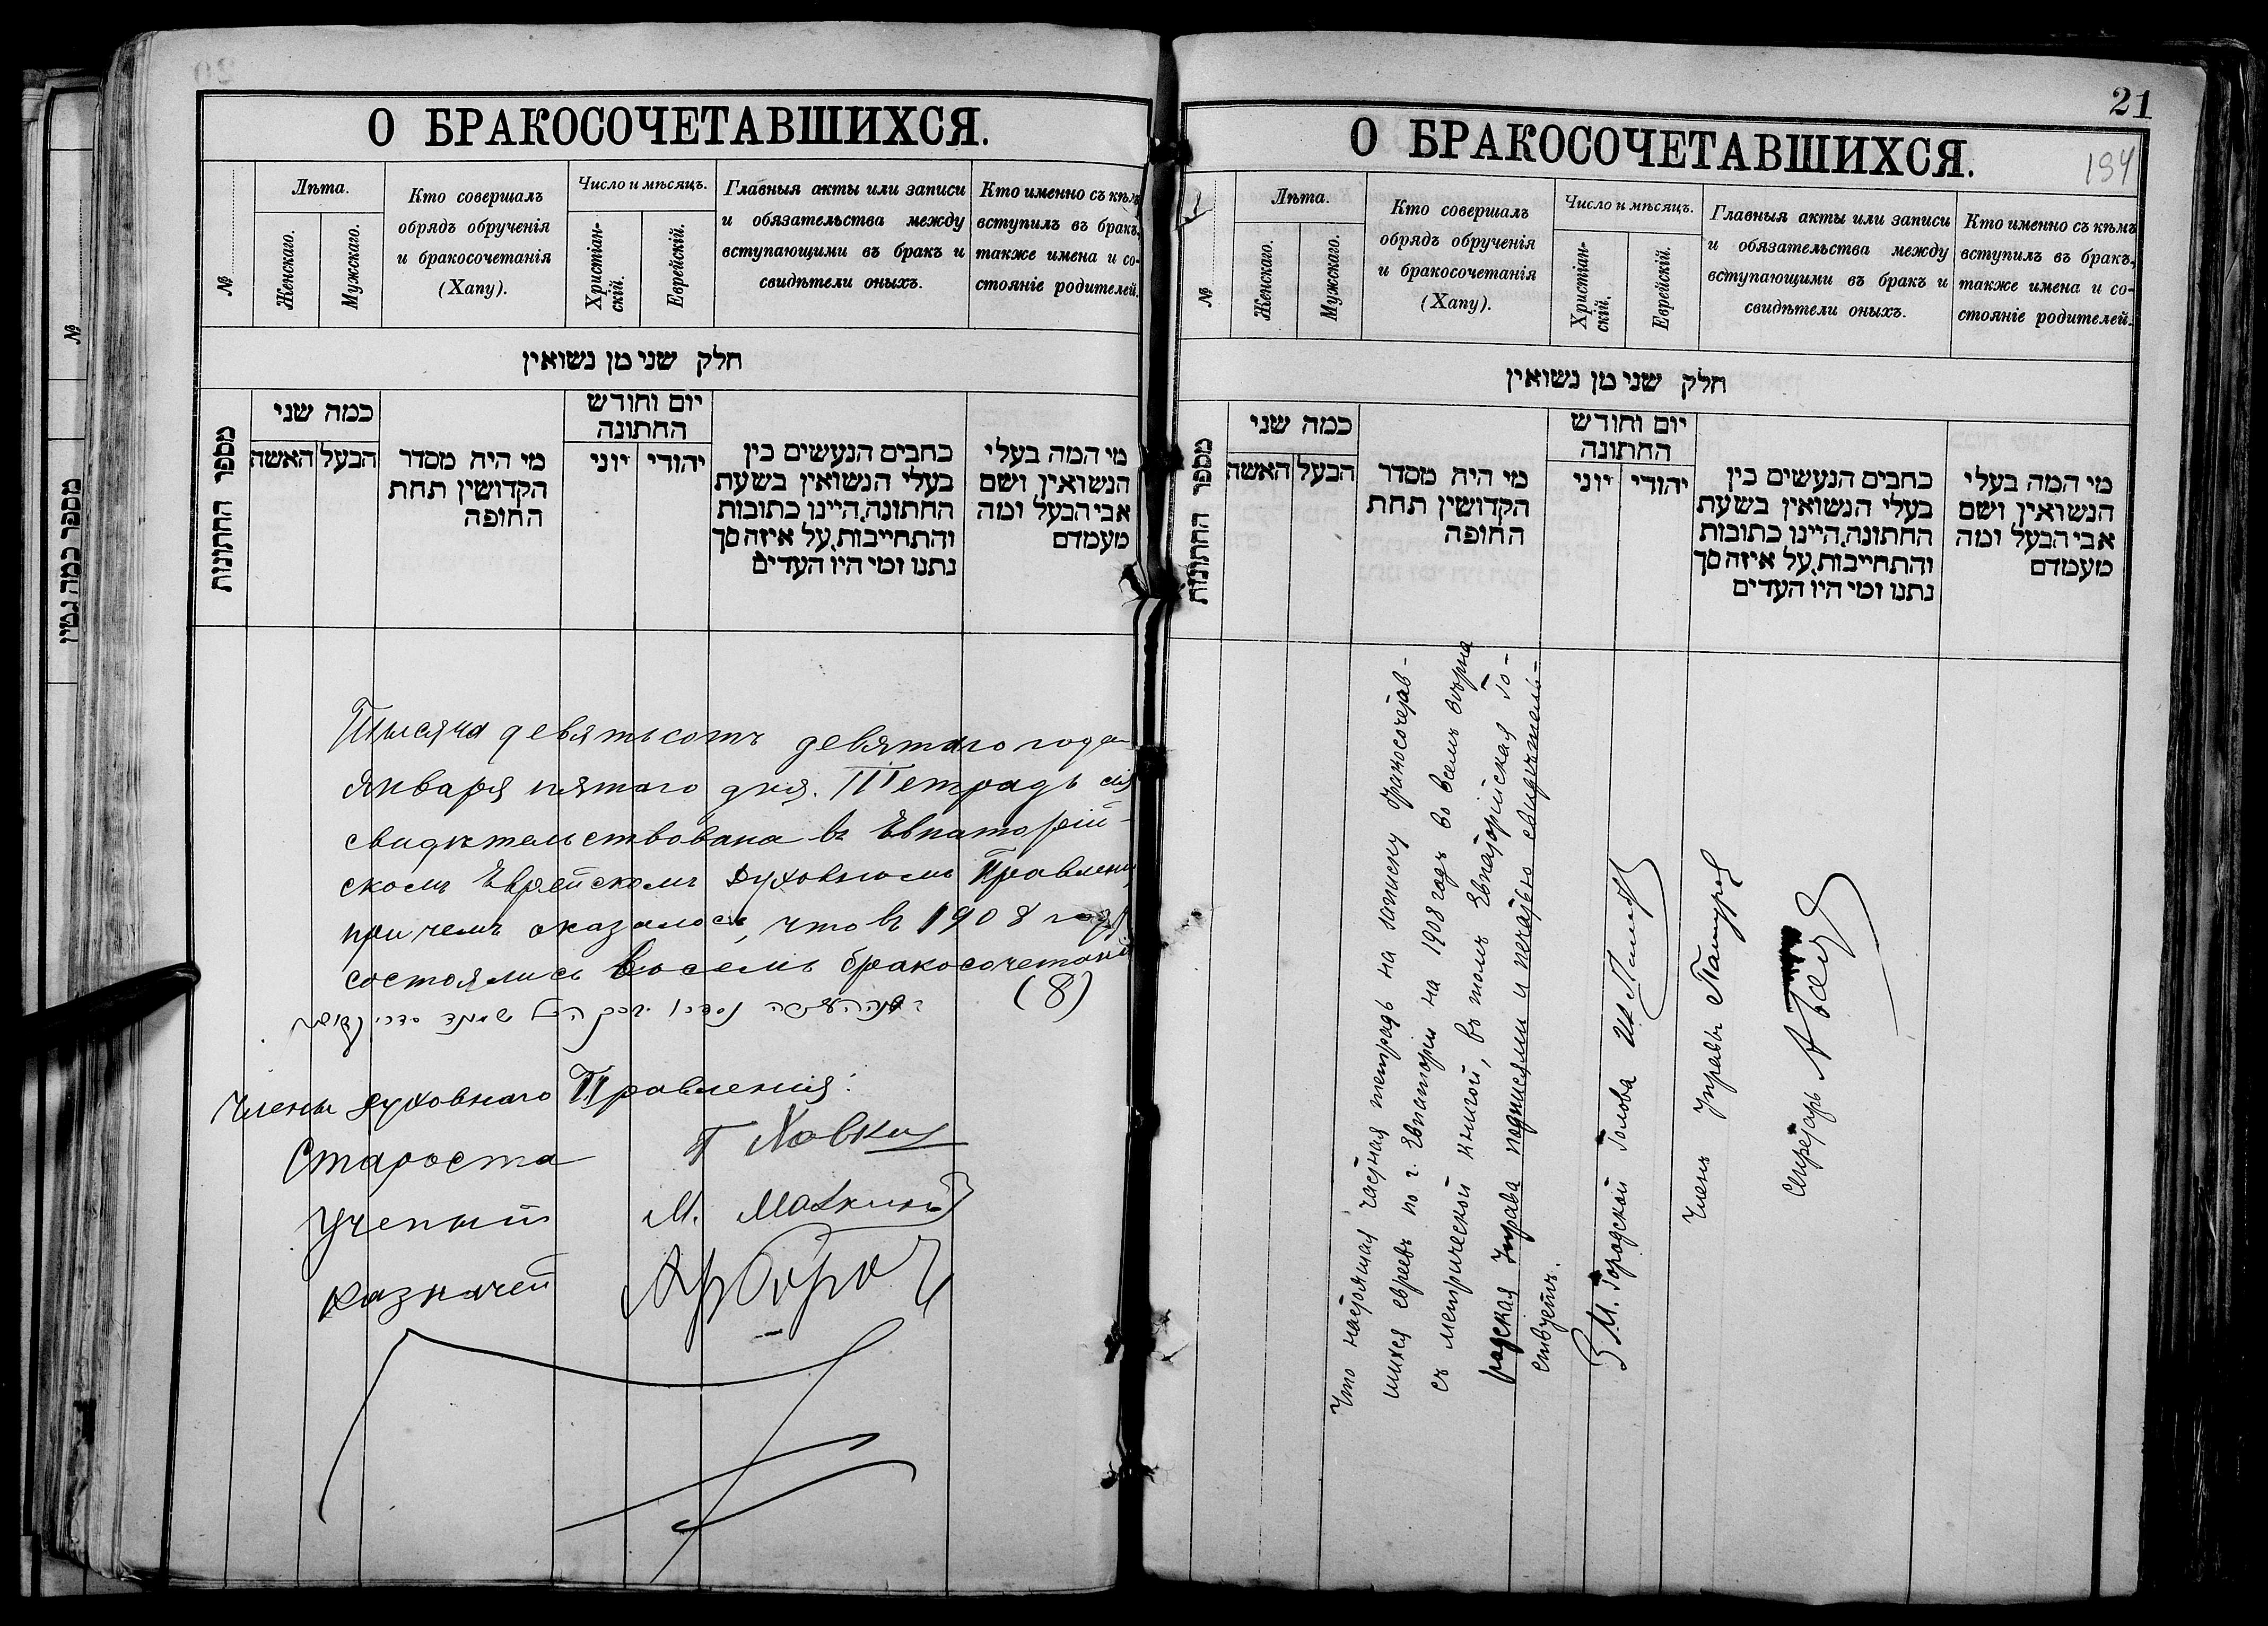 О БРАКОСОЧЕТАВШИХСЯ.
№
Лѣта.
Женскаго.
Мужскаго.
Кто совершалъ
обрядъ обрученія
и бракосочетанія
(Хапу).
Число и мѣсяцъ.
Христіан-
скій.
Еврейскій.
Главныя акты или записи
и обязательства между
вступающими въ бракъ и
свидѣтели оныхъ.
Кто именно съ кѣмъ
вступилъ въ бракъ,
также имена и со-
стояніе родителей.
חלק שני מן נשואין
מספר החתונות
כמה שני
האשה
הבעל
מי היה מסדר
הקדושין תחת
החופה
יום וחודש
החתונה
יוני
יהודי
כתבים הנעשים בין
בעלי הנשואין בשעת
החתונה, היינו כתובות
והתחייבות, על איזה סך
נתנו ומי היו העדים
מי המה בעלי
הנשואין ושם
אבי הבעל ומה
מעמדם
Тысяча девятьсотъ девятаго года
Января пятаго дня. Тетрадь сія
свидѣтельствована въ Евпаторій-
скомъ Еврейскомъ Духовномъ Правленіи,
при чемъ оказалось, что въ 1908 году
состоялись восемь бракосочетаній
(8)
Члены Духовнаго Правленія:
Староста
Ученый М.
Казначей
№
מספר כמה גטין
21
О БРАКОСОЧЕТАВШИХСЯ.
194
№
Лѣта.
Женскаго.
Мужскаго.
Кто совершалъ
обрядъ обрученія
и бракосочетанія
(Хапу).
Число и мѣсяцъ.
Христіан-
скій.
Еврейскій.
Главныя акты или записи
и обязательства между
вступающими въ бракъ и
свидѣтели оныхъ.
Кто именно съ кѣмъ
вступилъ въ бракъ,
также имена и со-
стояніе родителей.
חלק שני מן נשואין
מספר החתונות
כמה שני
האשה
הבעל
מי היה מסדר
הקדושין תחת
החופה
יום וחודש
החתונה
יוני
יהודי
כתבים הנעשים בין
בעלי הנשואין בשעת
החתונה, היינו כתובות
והתחייבות, על איזה סך
נתנו ומי היו העדים
מי המה בעלי
הנשואין ושם
אבי הבעל ומה
מעמדם
Что настоящая частная тетрадь на записку бракосочетав-
шихся евреевъ по г. Евпаторіи на 1908 годъ во всемъ вѣрна
съ метрической книгой, въ томъ Евпаторійская Го-
родская Управа подписями и печатью свидѣтель-
ствуетъ.
З. М. Городской Голова
Членъ Управы
Секретарь